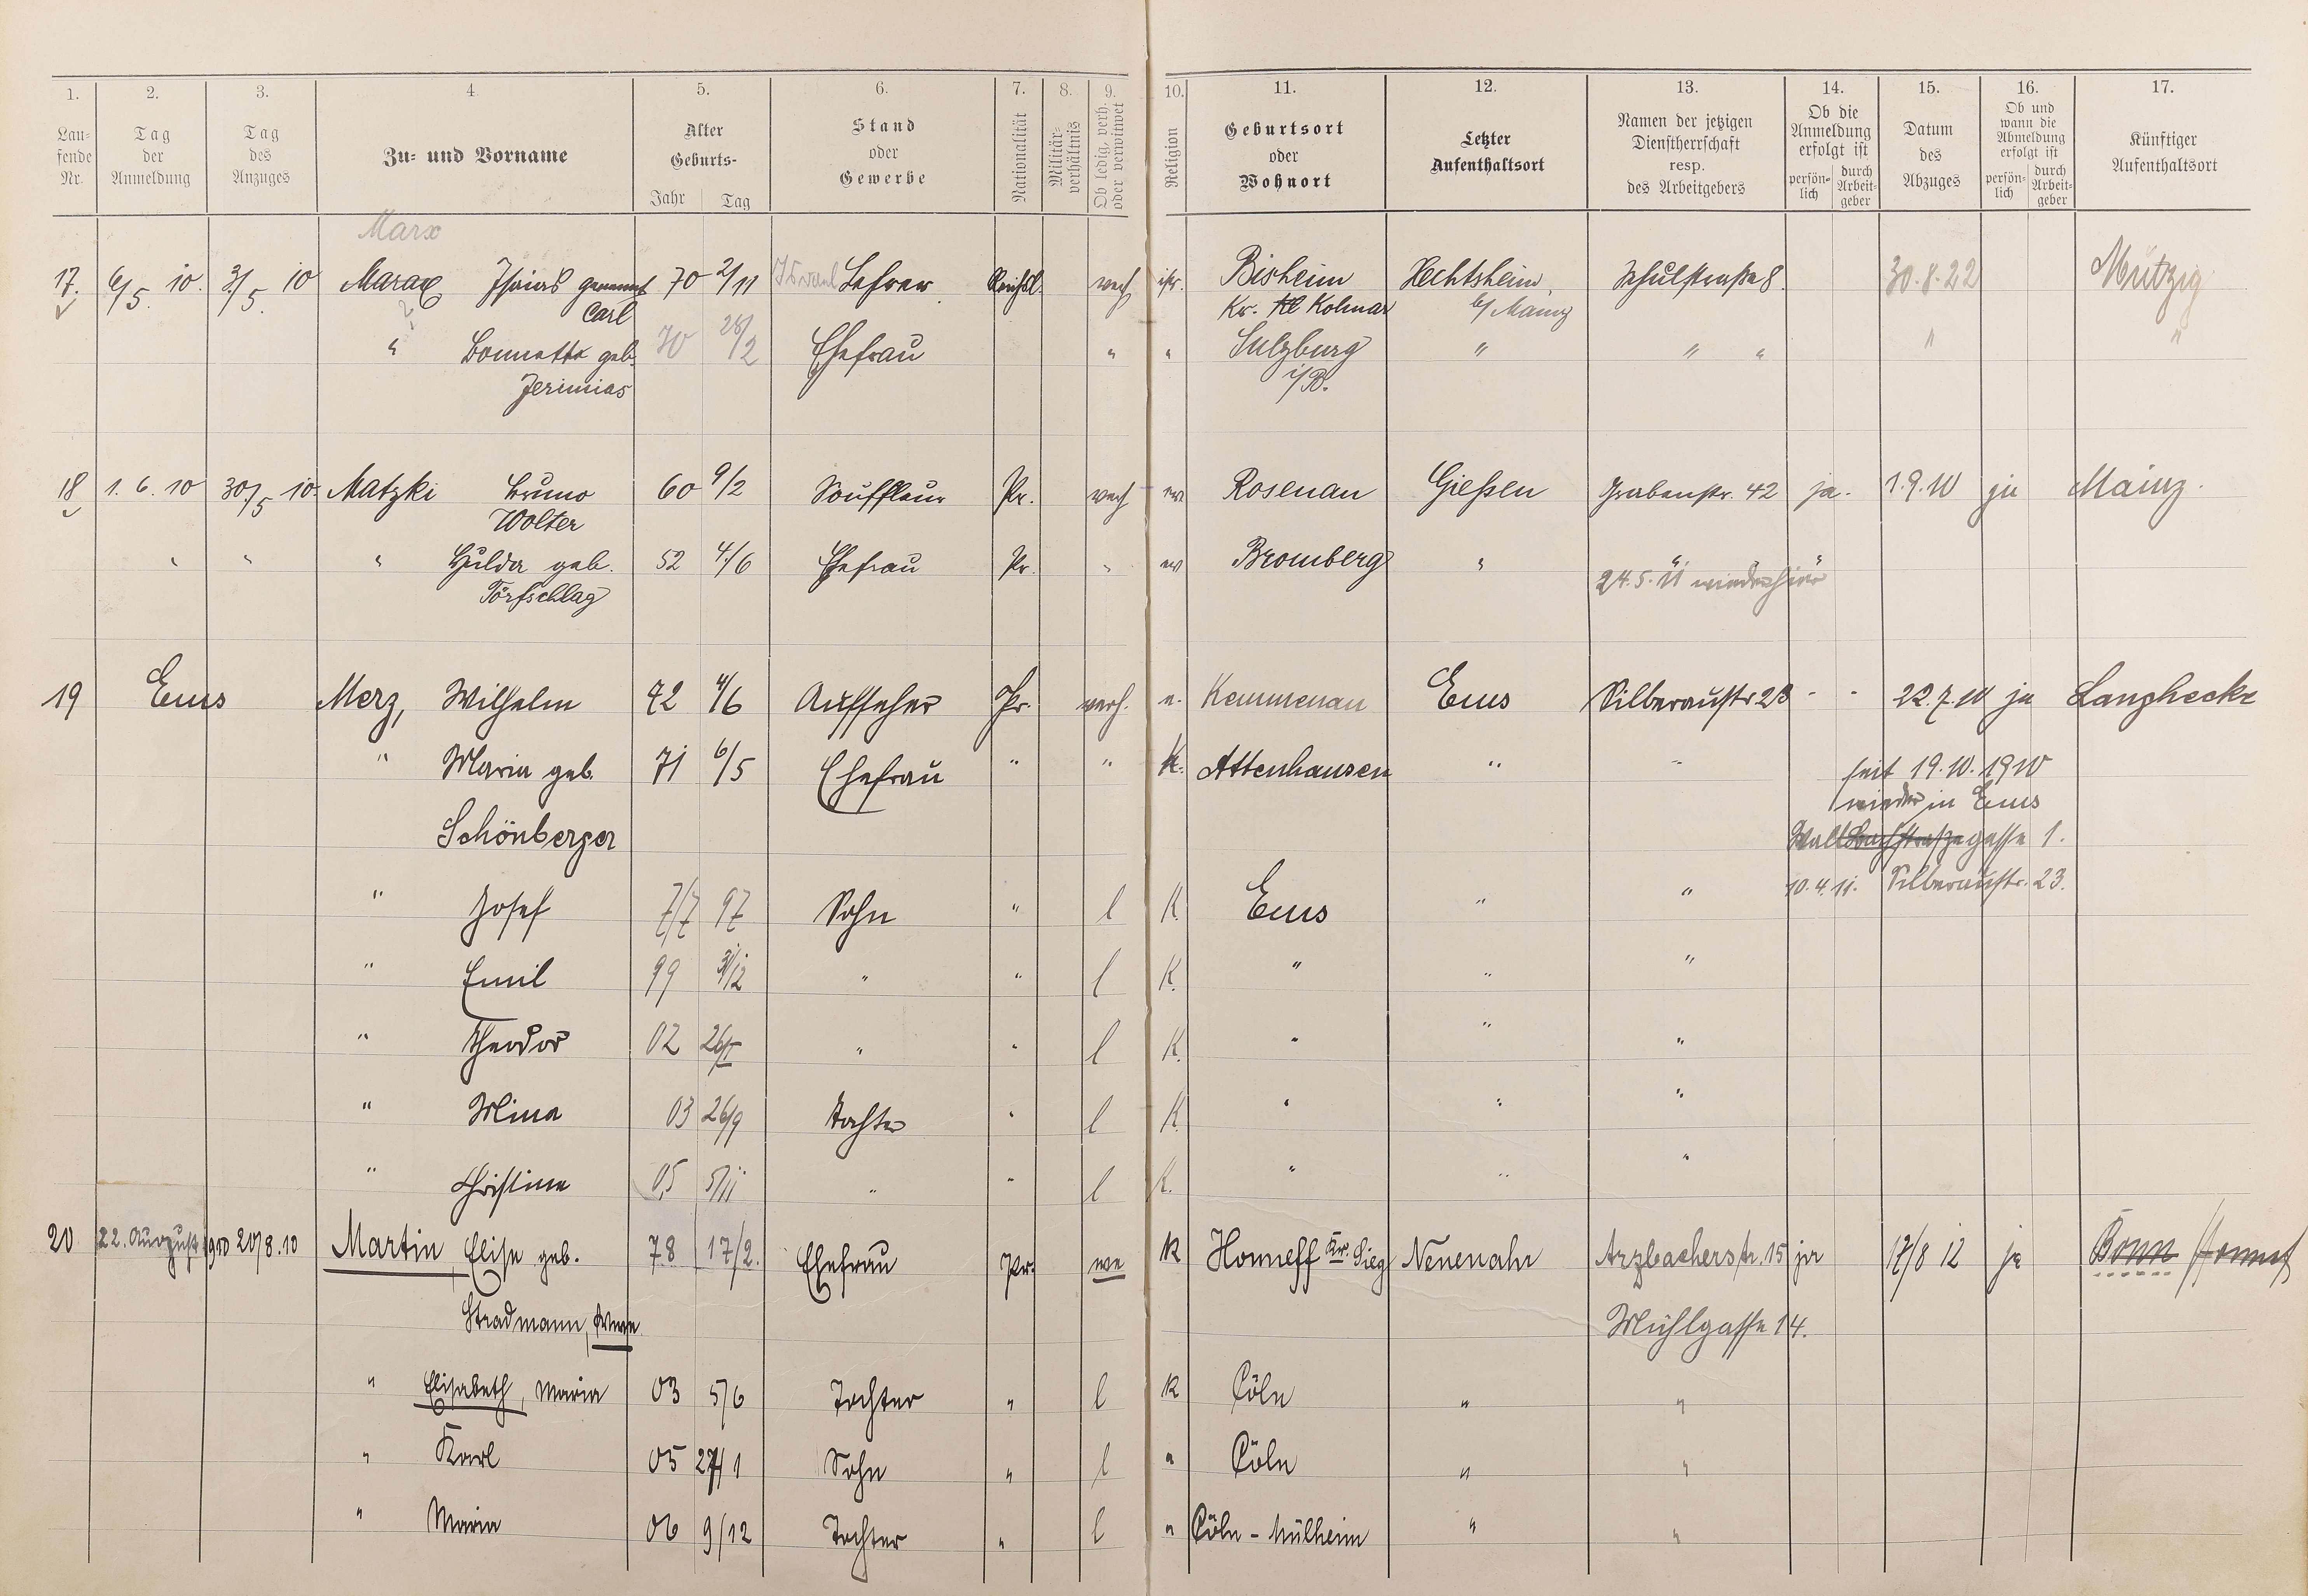 1. 2. 3. 4. 5. 6. 7. 8. 9. 10. 11. 12. 13. 14. 15. 16. 17.
Laufende Nr. Tag der Anmeldung Tag des Anzuges Zu- und Vorname Alter Geburts- Jahr Tag Stand oder Gewerbe Nationalität Militärverhältnis Ob ledig, verh. oder verwitwet Religion Geburtsort oder Wohnort Letzter Aufenthaltsort Namen der jetzigen Dienstherrschaft resp. des Arbeitgebers Ob die Anmeldung erfolgt ist persönlich durch Arbeitgeber Datum des Abzuges Ob und wann die Abmeldung erfolgt ist persönlich durch Arbeitgeber Künftiger Aufenthaltsort
Marx
17. 6/5. 10. 3/5. 10 Marax Isaias genannt 70 2/11 Israel Lehrer Reichsl. verh isr. Bisheim Hechtsheim Schulstraße 8. 30.8.22 Mutzig
Carl Kr. Kolmar b/ Mainz
" Bonnette geb. 70 28/2 Ehefrau " " Sulzburg " " " " "
Jerimias i/B.
18 1. 6. 10 30/5 10. Matzki Bruno 60 9/2 Souffleur Pr. verh ev Rosenau Gießen Grabenstr. 42 ja. 1.9.10 ja Mainz.
Wolter
" " " Hulda geb. 52 4/6 Ehefrau Pr. " ev Bromberg " " "
Torfschlag 24.5.11 wieder hier
19 Ems Merz, Wilhelm 72 4/6 Aufseher Pr. verh. e. Kemmenau Ems Silberaustr 23 - - 22.7.10 ja Langhecke
" Maria geb. 71 6/5 Ehefrau " " K. Attenhausen " " seit 19.10.1910
wieder in Ems
Schönberger Wall Bachstraße gasse 1.
10.4.11. Silberaustr. 23.
" Josef 7/7 97 Sohn " l K. Ems " "
" Emil 99 31/12 " " l K. " " "
" Theodor 02 26/I " " l K. " " "
" Mina 03 26/9 Tochter " l K. " " "
" Christine 05 5/11 " " l K. " " "
20 22. August 1910 20/8.10 Martin, Elise geb. 78 17/2. Ehefrau Pr. we K Honneff Kr. Sieg Neuenahr Arzbacherstr. 15 ja 17/8 12 ja Bonn Honnef
Stradmann, Wwe Mühlgasse 14.
" Elisabeth, Maria 03 5/6 Tochter " l K Cöln " "
" Karl 05 27/1 Sohn " l " Cöln " "
" Maria 06 9/12 Tochter " l " Cöln - Mülheim " "